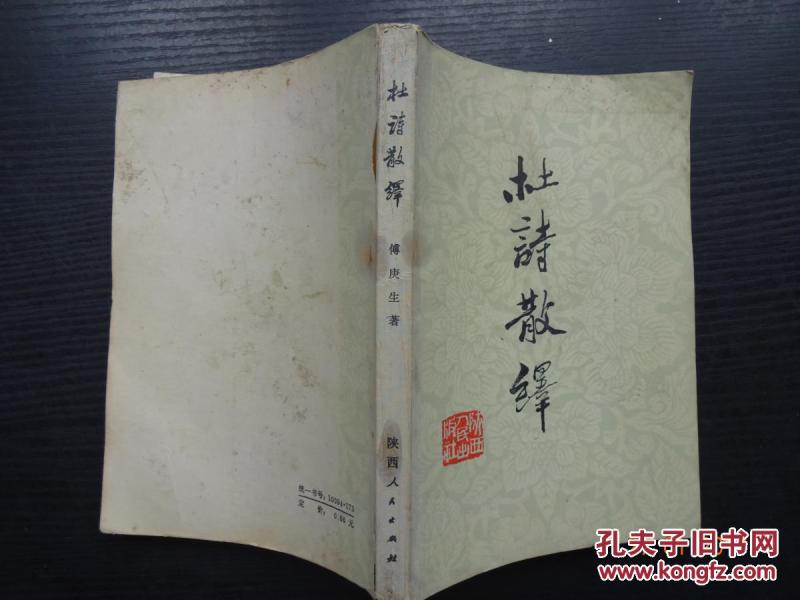 杜诗散绎
傅庚生著
陕西人民出版社
杜詩散繹
陕西
人民出
版社
统一书号：10094·173
定价：0.66元
孔夫子旧书网
www.kongfz.com